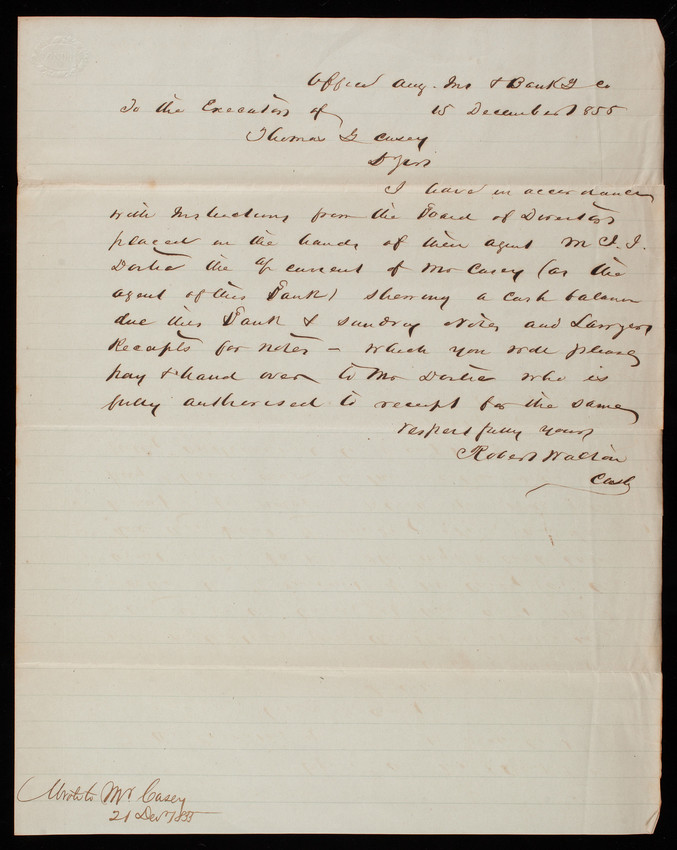 Office Aug. Ins & Bankg Co
To the Executors of 15 December 1855
Thomas G Casey
D Sirs
I have in accordance
with Instructions from the Board of Directors
placed in the hands of their agent M J. J.
Dortic the a/c current of Mr Casey (as the
agent of this Bank) shewing a cash balance
due this Bank & sundry Notes and Lawyers
Receipts for notes – which you will please
pay & hand over to Mr Dortic who is
fully authorised to receipt for the same
respectfully yours
Robert Walton
Cash
Wrote to Mr. Casey
21 Decr 1855